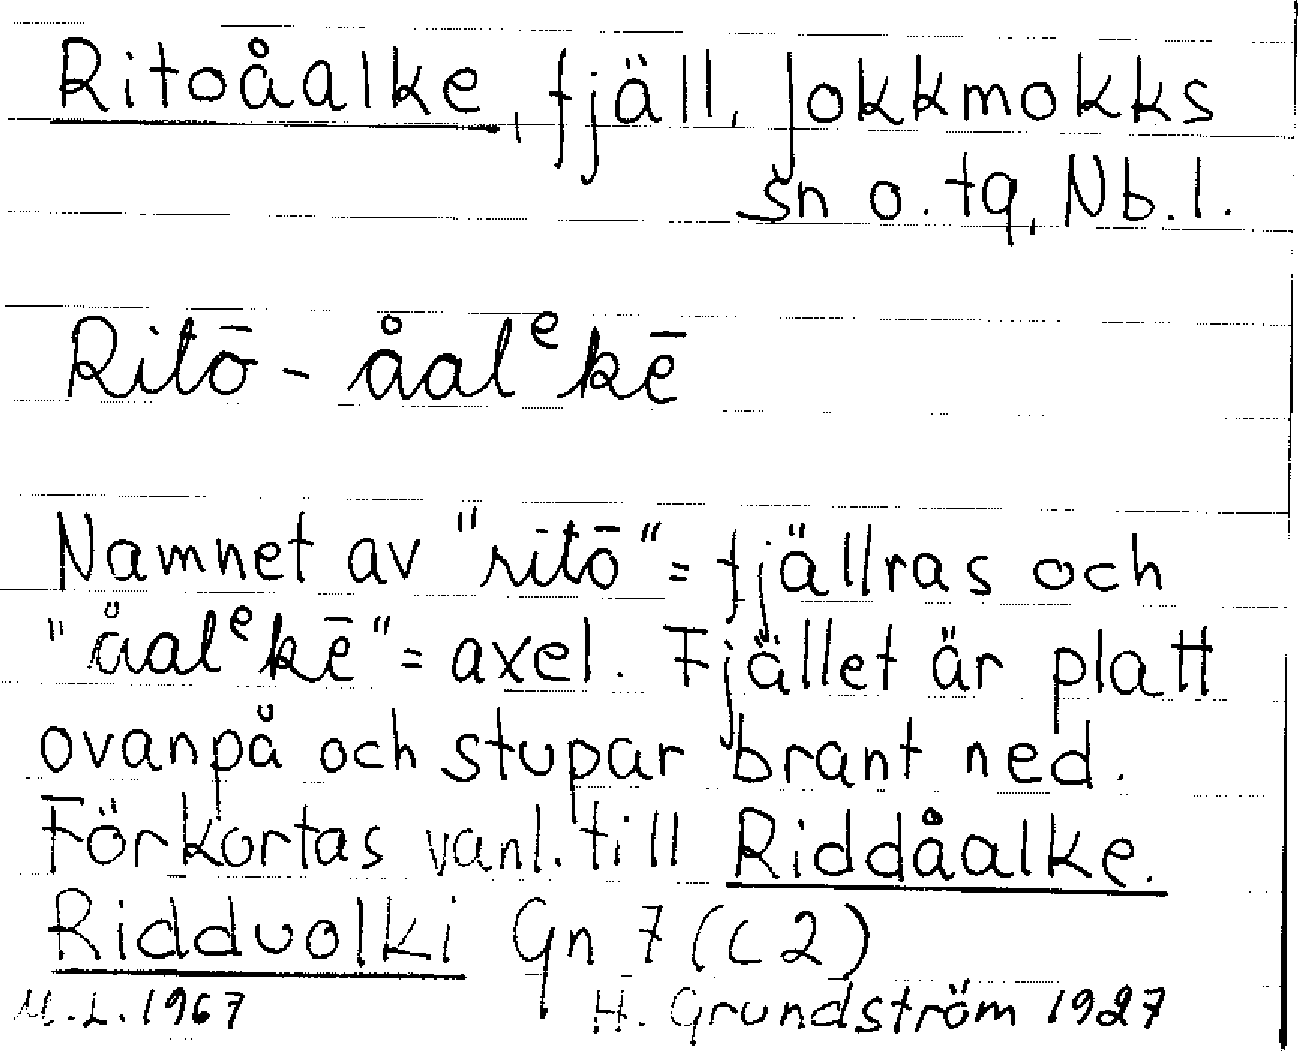 Ritoåalke, fjäll, Jokkmokks
sn o. tg, Nb.l.
Ritō - åalᵉkē
Namnet av "ritō" = fjällras och
"åalᵉkē" = axel. Fjället är platt
ovanpå och stupar brant ned.
Förkortas vanl. till Riddåalke.
Ridduolki Gn 7 (C2)
M.L. 1967 H. Grundström 1927